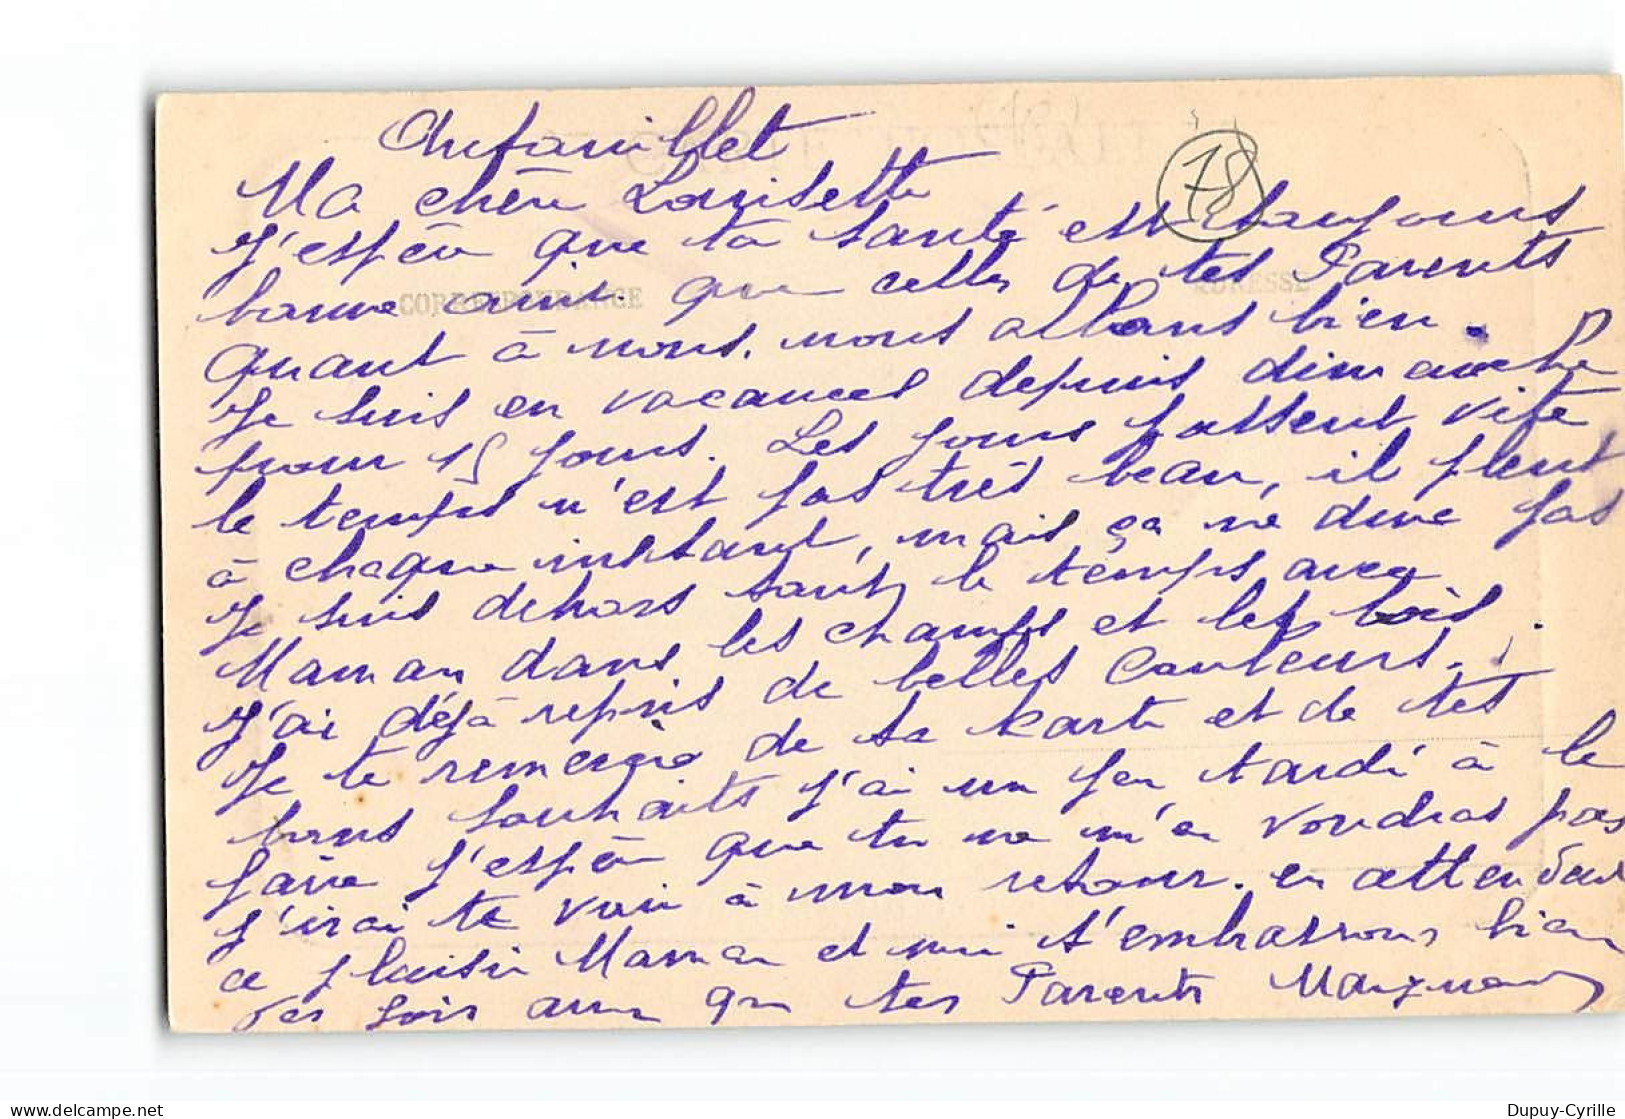 78
Ma chère Louisette
J'espère que ta santé est toujours
CORRESPONDANCE
ADRESSE
bonne ainsi que celles de tes Parents
quant à nous, nous allons bien.
Je suis en vacances depuis dimanche
pour 15 jours. Les jours passent vite
le temps n'est pas très beau, il pleut
à chaque instant, mais ça ne dure pas
Je suis dehors tout le temps avec
Maman dans les champs et les bois.
J'ai déjà repris de belles couleurs.
Je te remercie de ta karte et de tes
bons souhaits j'ai un peu tardé à le
faire j'espère que tu ne m'en voudras pas
j'irai te voir à mon retour. en attendant
ce plaisir Maman et moi t'embrassons bien
des fois ainsi que tes Parents
Dupuy-Cyrille